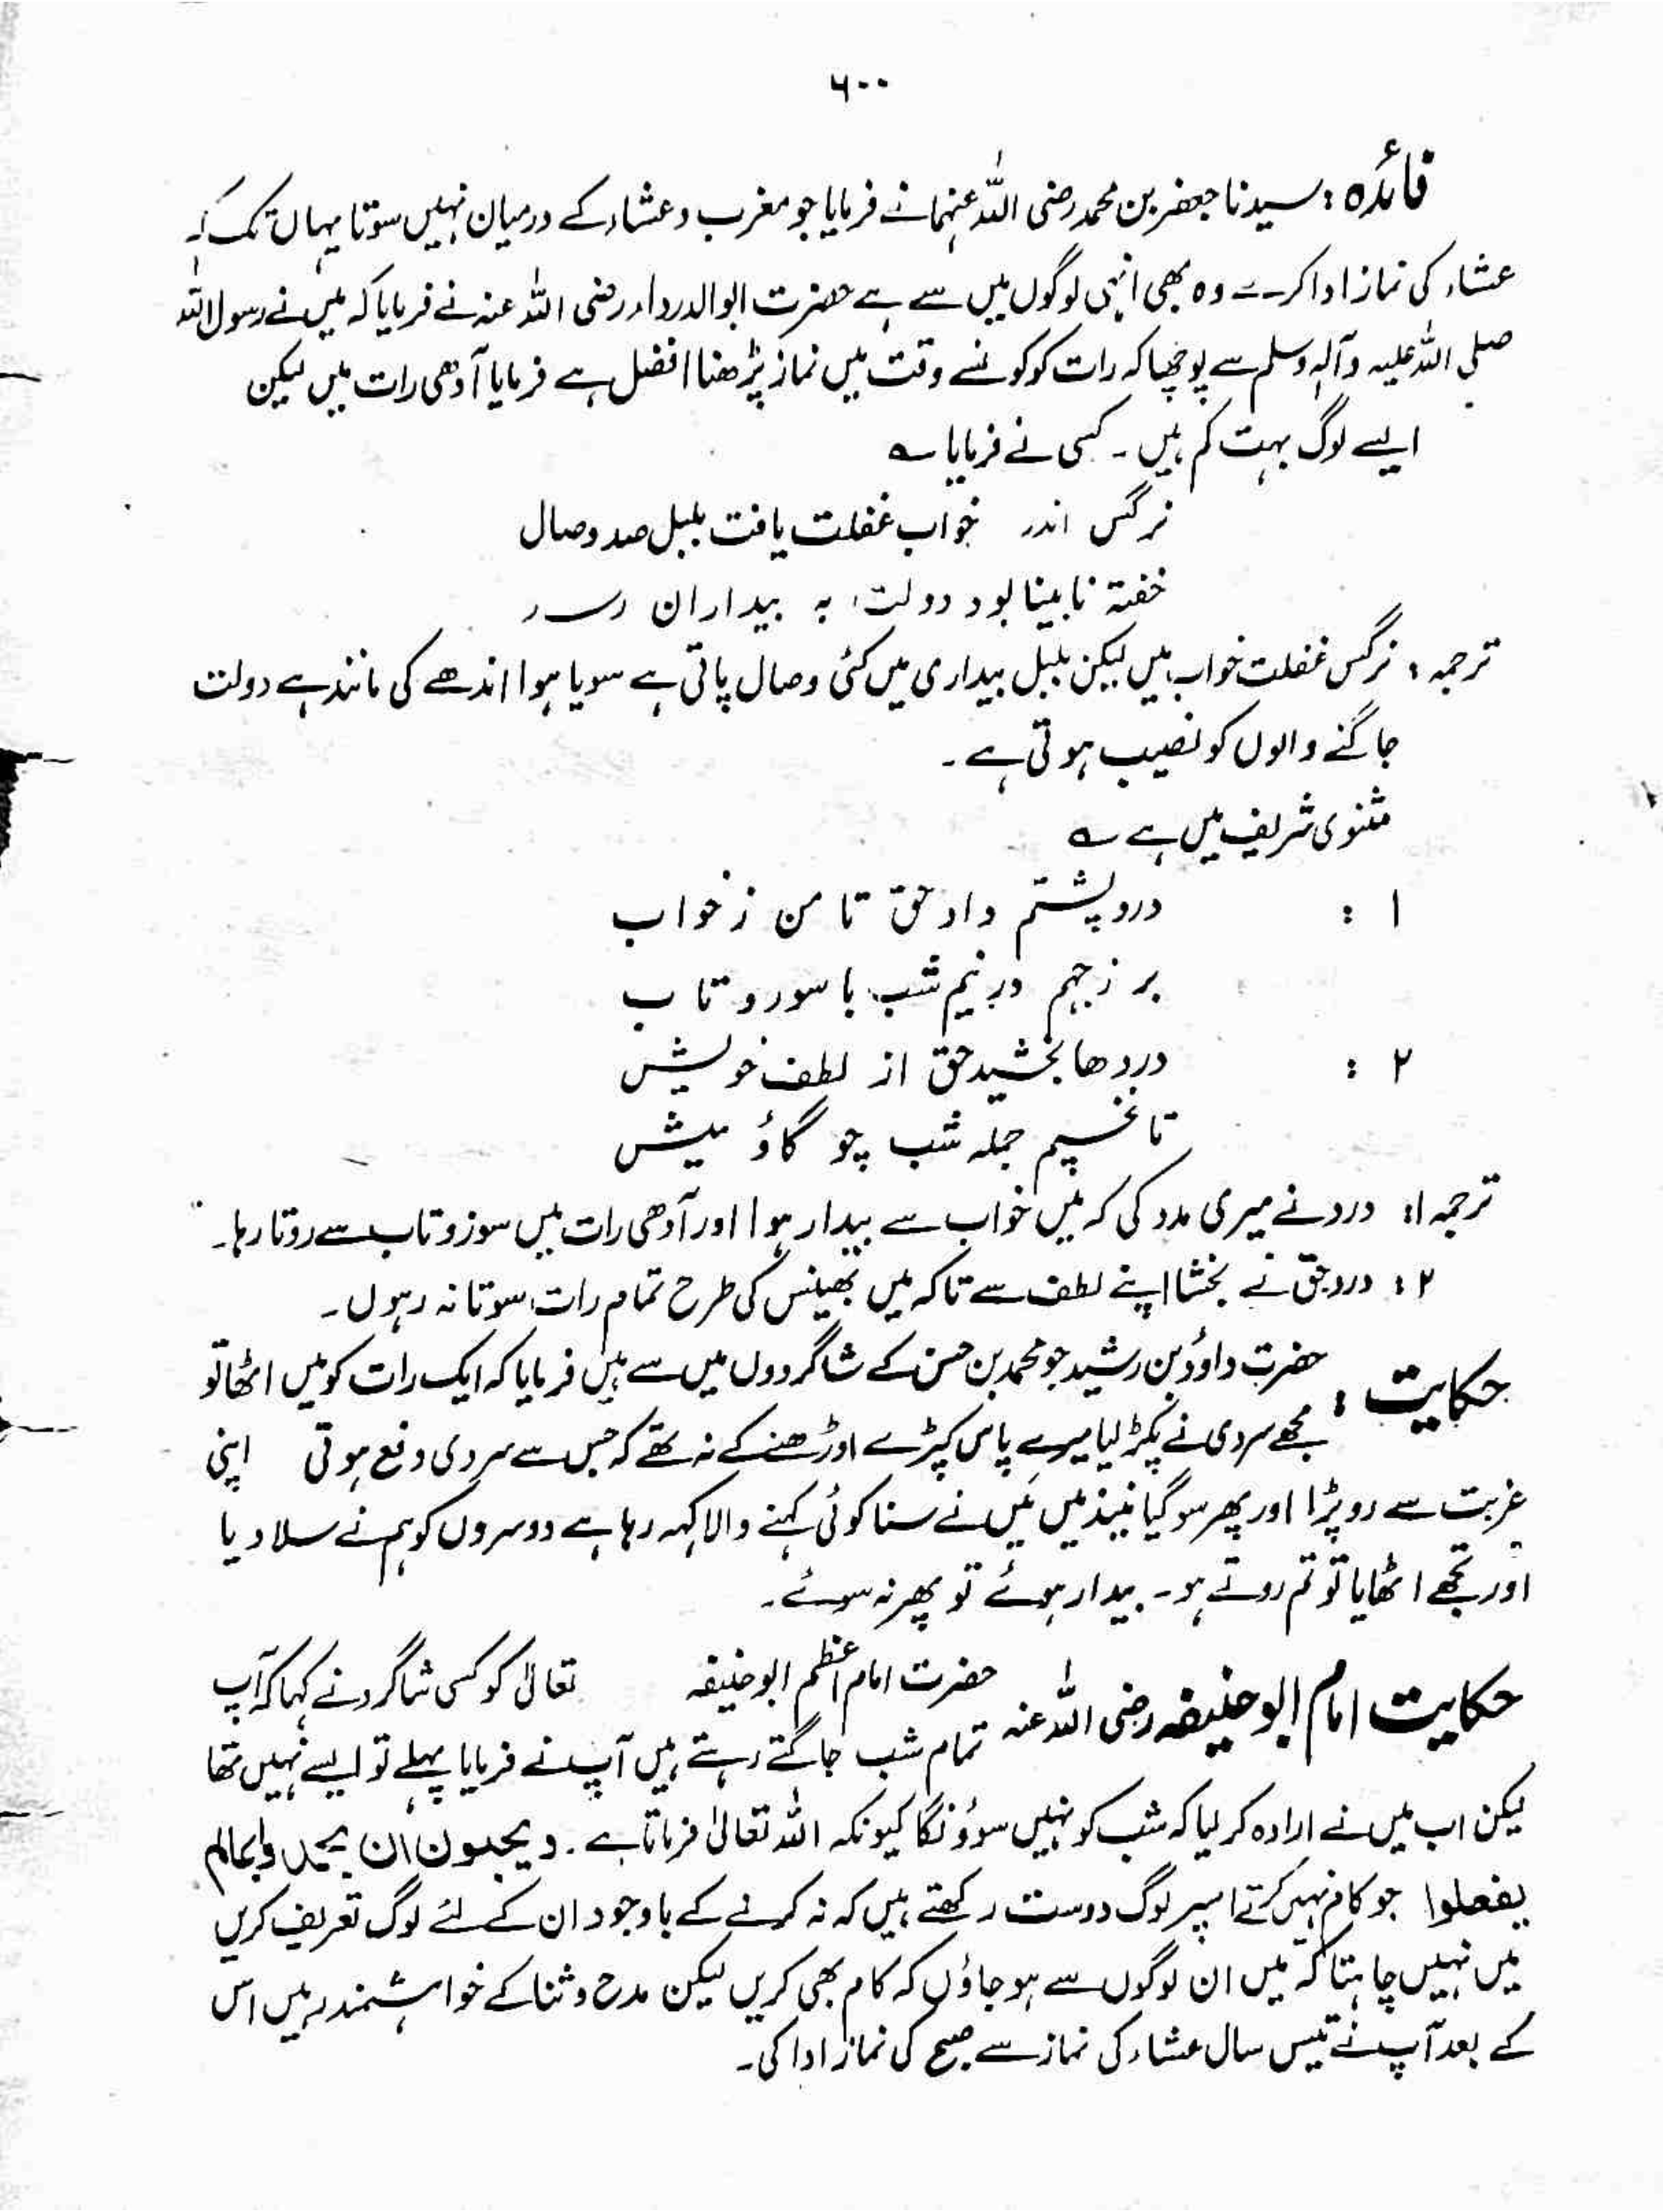 ۶۰۰
فائدہ : سیدنا جعفر بن محمد رضی اللہ عنہما نے فرمایا جو مغرب و عشاء کے درمیان نہیں سوتا یہاں تک کہ
عشاء کی نماز ادا کرے وہ بھی انہی لوگوں میں سے ہے حضرت ابو الدرداء رضی اللہ عنہ نے فرمایا کہ میں نے رسول اللہ
صلی اللہ علیہ وآلہ وسلم سے پوچھا کہ رات کو کونسے وقت میں نماز پڑھنا افضل ہے فرمایا آدھی رات میں لیکن
ایسے لوگ بہت کم ہیں ۔ کسی نے فرمایا ؎
نرگس اندر خواب غفلت یافت بلبل صد وصال
خفتہ نابینا بود دولت بہ بیداران رسد
ترجمہ : نرگس غفلت خواب میں لیکن بلبل بیداری میں کئی وصال پاتی ہے سویا ہوا اندھے کی مانند ہے دولت
جاگنے والوں کو نصیب ہوتی ہے ۔
مثنوی شریف میں ہے ؎
۱ : درد پشتم داد حق تا من ز خواب
بر زجہم در نیم شب با سور و تاب
۲ : دردھا بخشید حق از لطف خویش
تا نخسپم جملہ شب چو گاؤ میش
ترجمہ ۱: درد نے میری مدد کی کہ میں خواب سے بیدار ہوا اور آدھی رات میں سوز و تاب سے روتا رہا ۔
۲ : درد حق نے بخشا اپنے لطف سے تاکہ میں بھینس کی طرح تمام رات سوتا نہ رہوں ۔
حکایت : حضرت داؤد بن رشید جو محمد بن حسن کے شاگردوں میں سے ہیں فرمایا کہ ایک رات کو میں اٹھا تو
مجھے سردی نے پکڑ لیا میرے پاس کپڑے اوڑھنے کے نہ تھے کہ جس سے سردی دفع ہوتی اپنی
غربت سے رو پڑا اور پھر سو گیا نیند میں میں نے سنا کوئی کہنے والا کہہ رہا ہے دوسروں کو ہم نے سلا دیا
اور تجھے اٹھایا تو تم روتے ہو ۔ بیدار ہوئے تو پھر نہ سوئے ۔
حکایت امام ابو حنیفہ رضی اللہ عنہ حضرت امام اعظم ابو حنیفہ تعالیٰ کو کسی شاگرد نے کہا کہ آپ
تمام شب جاگتے رہتے ہیں آپ نے فرمایا پہلے تو ایسے نہیں تھا
لیکن اب میں نے ارادہ کر لیا کہ شب کو نہیں سوؤنگا کیونکہ اللہ تعالیٰ فرماتا ہے ۔ و یحبون ان یحمدوا بمالم
یفعلوا جو کام نہیں کرتے اسپر لوگ دوست رکھتے ہیں کہ نہ کرنے کے باوجود ان کے لئے لوگ تعریف کریں
میں نہیں چاہتا کہ میں ان لوگوں سے ہو جاؤں کہ کام بھی کریں لیکن مدح و ثنا کے خواہشمند رہیں اس
کے بعد آپ نے تیس سال عشاء کی نماز سے صبح کی نماز ادا کی ۔